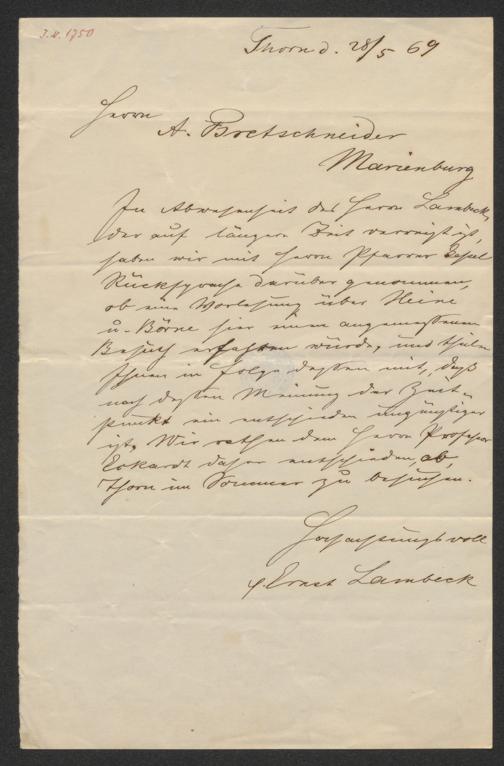 J.N. 1750
Thorn d. 28/5 69
Herrn
A. Bretschneider
Marienburg
In Abwesenheit des Herrn Lambeck,
der auf längere Zeit verreist ist,
haben wir mit Herrn Pfarrer
Rücksprache darüber genommen,
ob eine Vorlesung über Heine
u. Börne hier einen angemessenen
Besuch erfahren würde, und theilen
Ihnen in Folge dessen mit, daß
nach dessen Meinung der Zeit-
punkt ein entschieden ungünstiger
ist. Wir rathen dem Herrn Professor
Eckardt daher entschieden ab,
Thorn im Sommer zu besuchen.
Hochachtungsvoll
p. Ernst Lambeck